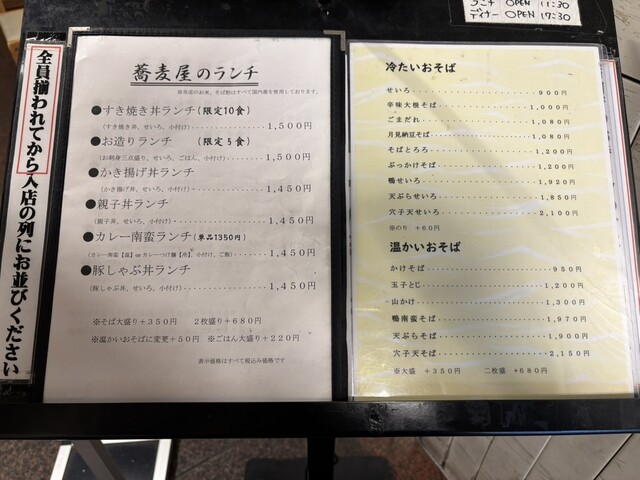 ランチ OPEN 11:30
ディナー OPEN 17:30
全員揃われてから入店の列にお並びください
蕎麦屋のランチ
●すき焼き丼ランチ(限定10食)
(すき焼き丼、せいろ、小付け)・・・・・・・・1,500円
●お造りランチ (限定5食)
(お刺身三点盛り、せいろ、ごはん、小付け)・・・・・・・・1,500円
●かき揚げ丼ランチ
(かき揚げ丼、せいろ、小付け)・・・・・・・・1,450円
●親子丼ランチ
(親子丼、せいろ、小付け)・・・・・・・・1,450円
●カレー南蛮ランチ(単品1350円)
(カレー南蛮【温】orカレーつけ麺【冷】、小付け、ご飯)・・・・・・・・1,450円
●豚しゃぶ丼ランチ
(豚しゃぶ丼、せいろ、小付け)・・・・・・・・1,450円
※そば大盛り+350円 2枚盛り+680円
※温かいおそばに変更+50円 ※ごはん大盛り+220円
表示価格はすべて税込み価格です
冷たいおそば
せいろ・・・・・・・・900円
辛味大根そば・・・・・・・・1,000円
ごまだれ・・・・・・・・1,080円
月見納豆そば・・・・・・・・1,080円
そばとろろ・・・・・・・・1,200円
ぶっかけそば・・・・・・・・1,200円
鴨せいろ・・・・・・・・1,920円
天ぷらせいろ・・・・・・・・1,850円
穴子天せいろ・・・・・・・・2,100円
※のり +60円
温かいおそば
かけそば・・・・・・・・950円
玉子とじ・・・・・・・・1,200円
山かけ・・・・・・・・1,300円
鴨南蛮そば・・・・・・・・1,970円
天ぷらそば・・・・・・・・1,900円
穴子天そば・・・・・・・・2,150円
※大盛 +350円 二枚盛 +680円